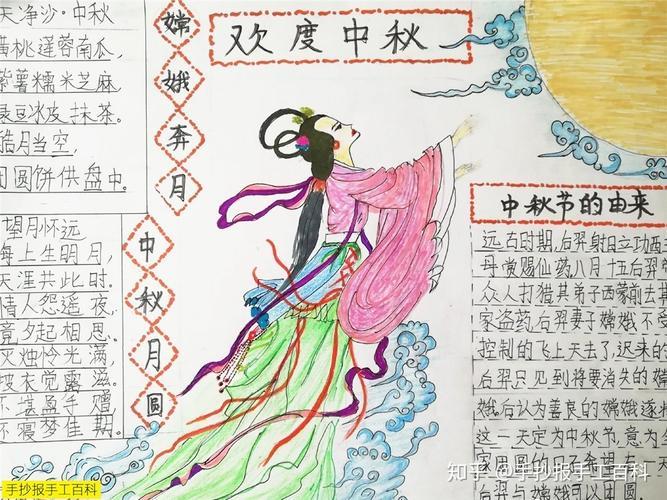 天净沙·中秋
黄桃莲蓉南瓜,
紫薯糯米芝麻
绿豆冰皮抹茶。
皓月当空,
团圆饼供盘中。
望月怀远
海上生明月,
天涯共此时。
情人怨遥夜,
竟夕起相思。
灭烛怜光满,
披衣觉露滋。
不堪盈手赠
还寝梦佳期。
嫦娥奔月
中秋月圆
欢度中秋
中秋节的由来
远古时期,后羿射日立功西王
母赏赐仙药八月十五后羿
众人打猎其弟子西蒙前去其
家盗药,后羿妻子嫦娥不受
控制的飞上天去了,迟来的
后羿只见到将要消失的嫦
娥后认为善良的嫦娥逐
这一天定为中秋节,意为
家团圆的日子希望有一天
后羿与嫦娥可以团圆
知乎 @手抄报手工百科
手抄报手工百科